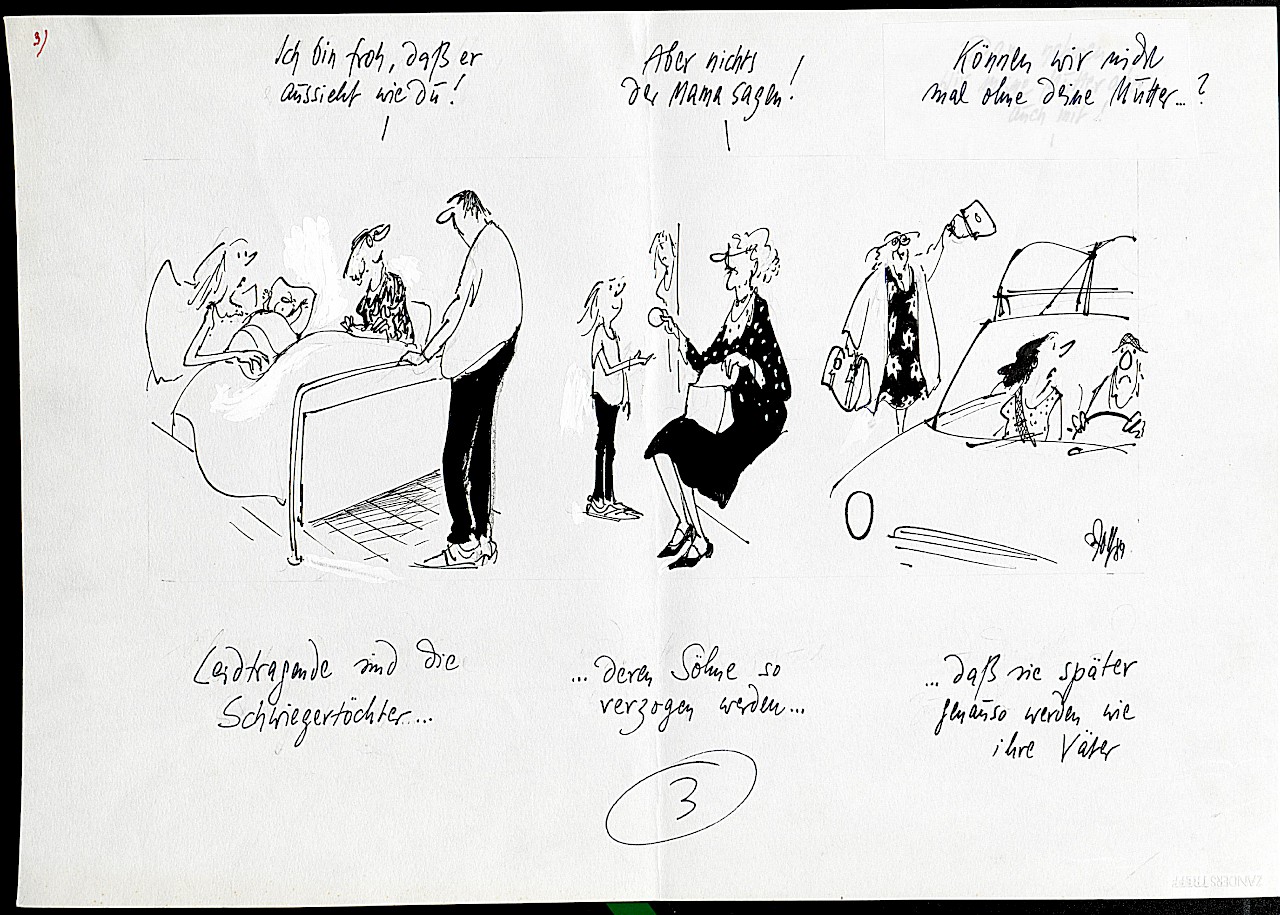 3)
Ich bin froh, daß er
aussieht wie du!
Aber nichts
der Mama sagen!
Können wir nicht
mal ohne deine Mutter...?
Leidtragende sind die
Schwiegertöchter...
... deren Söhne so
verzogen werden...
... daß sie später
genauso werden wie
ihre Väter
3
ZANDERS